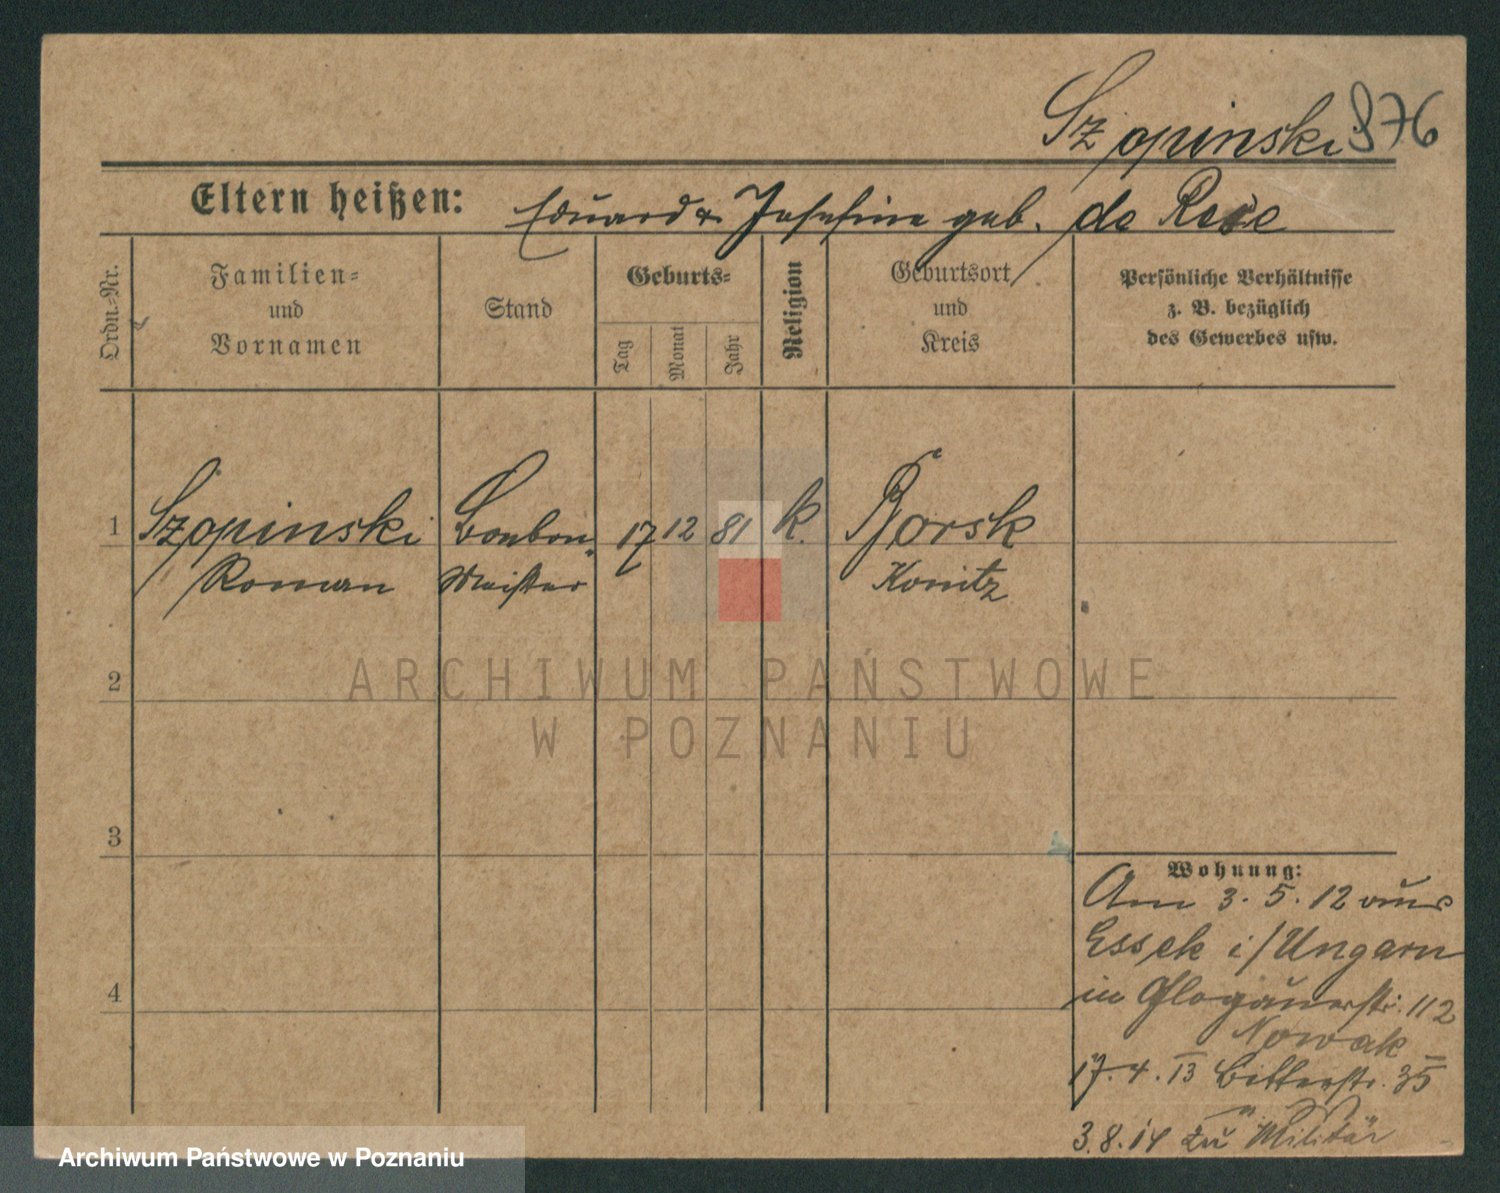 Szopinski 876
Eltern heißen: Eduard u. Josefine geb. de Rese
Ordn.-Nr.
Familien-
und
Vornamen
Stand
Geburts-
Tag
Monat
Jahr
Religion
Geburtsort
und
Kreis
Persönliche Verhältnisse
z. B. bezüglich
des Gewerbes usw.
1 Szopinski Bonbon- 17 12 81 k. Borsk
Roman Meister Konitz
2
ARCHIWUM PAŃSTWOWE
W POZNANIU
3
Wohnung:
Am 3.5.12 aus
Essek i/Ungarn
4
in Glogauerstr. 112
Nowak
17.4.13 Bitterstr. 35
3.8.14 zu Militär
Archiwum Państwowe w Poznaniu